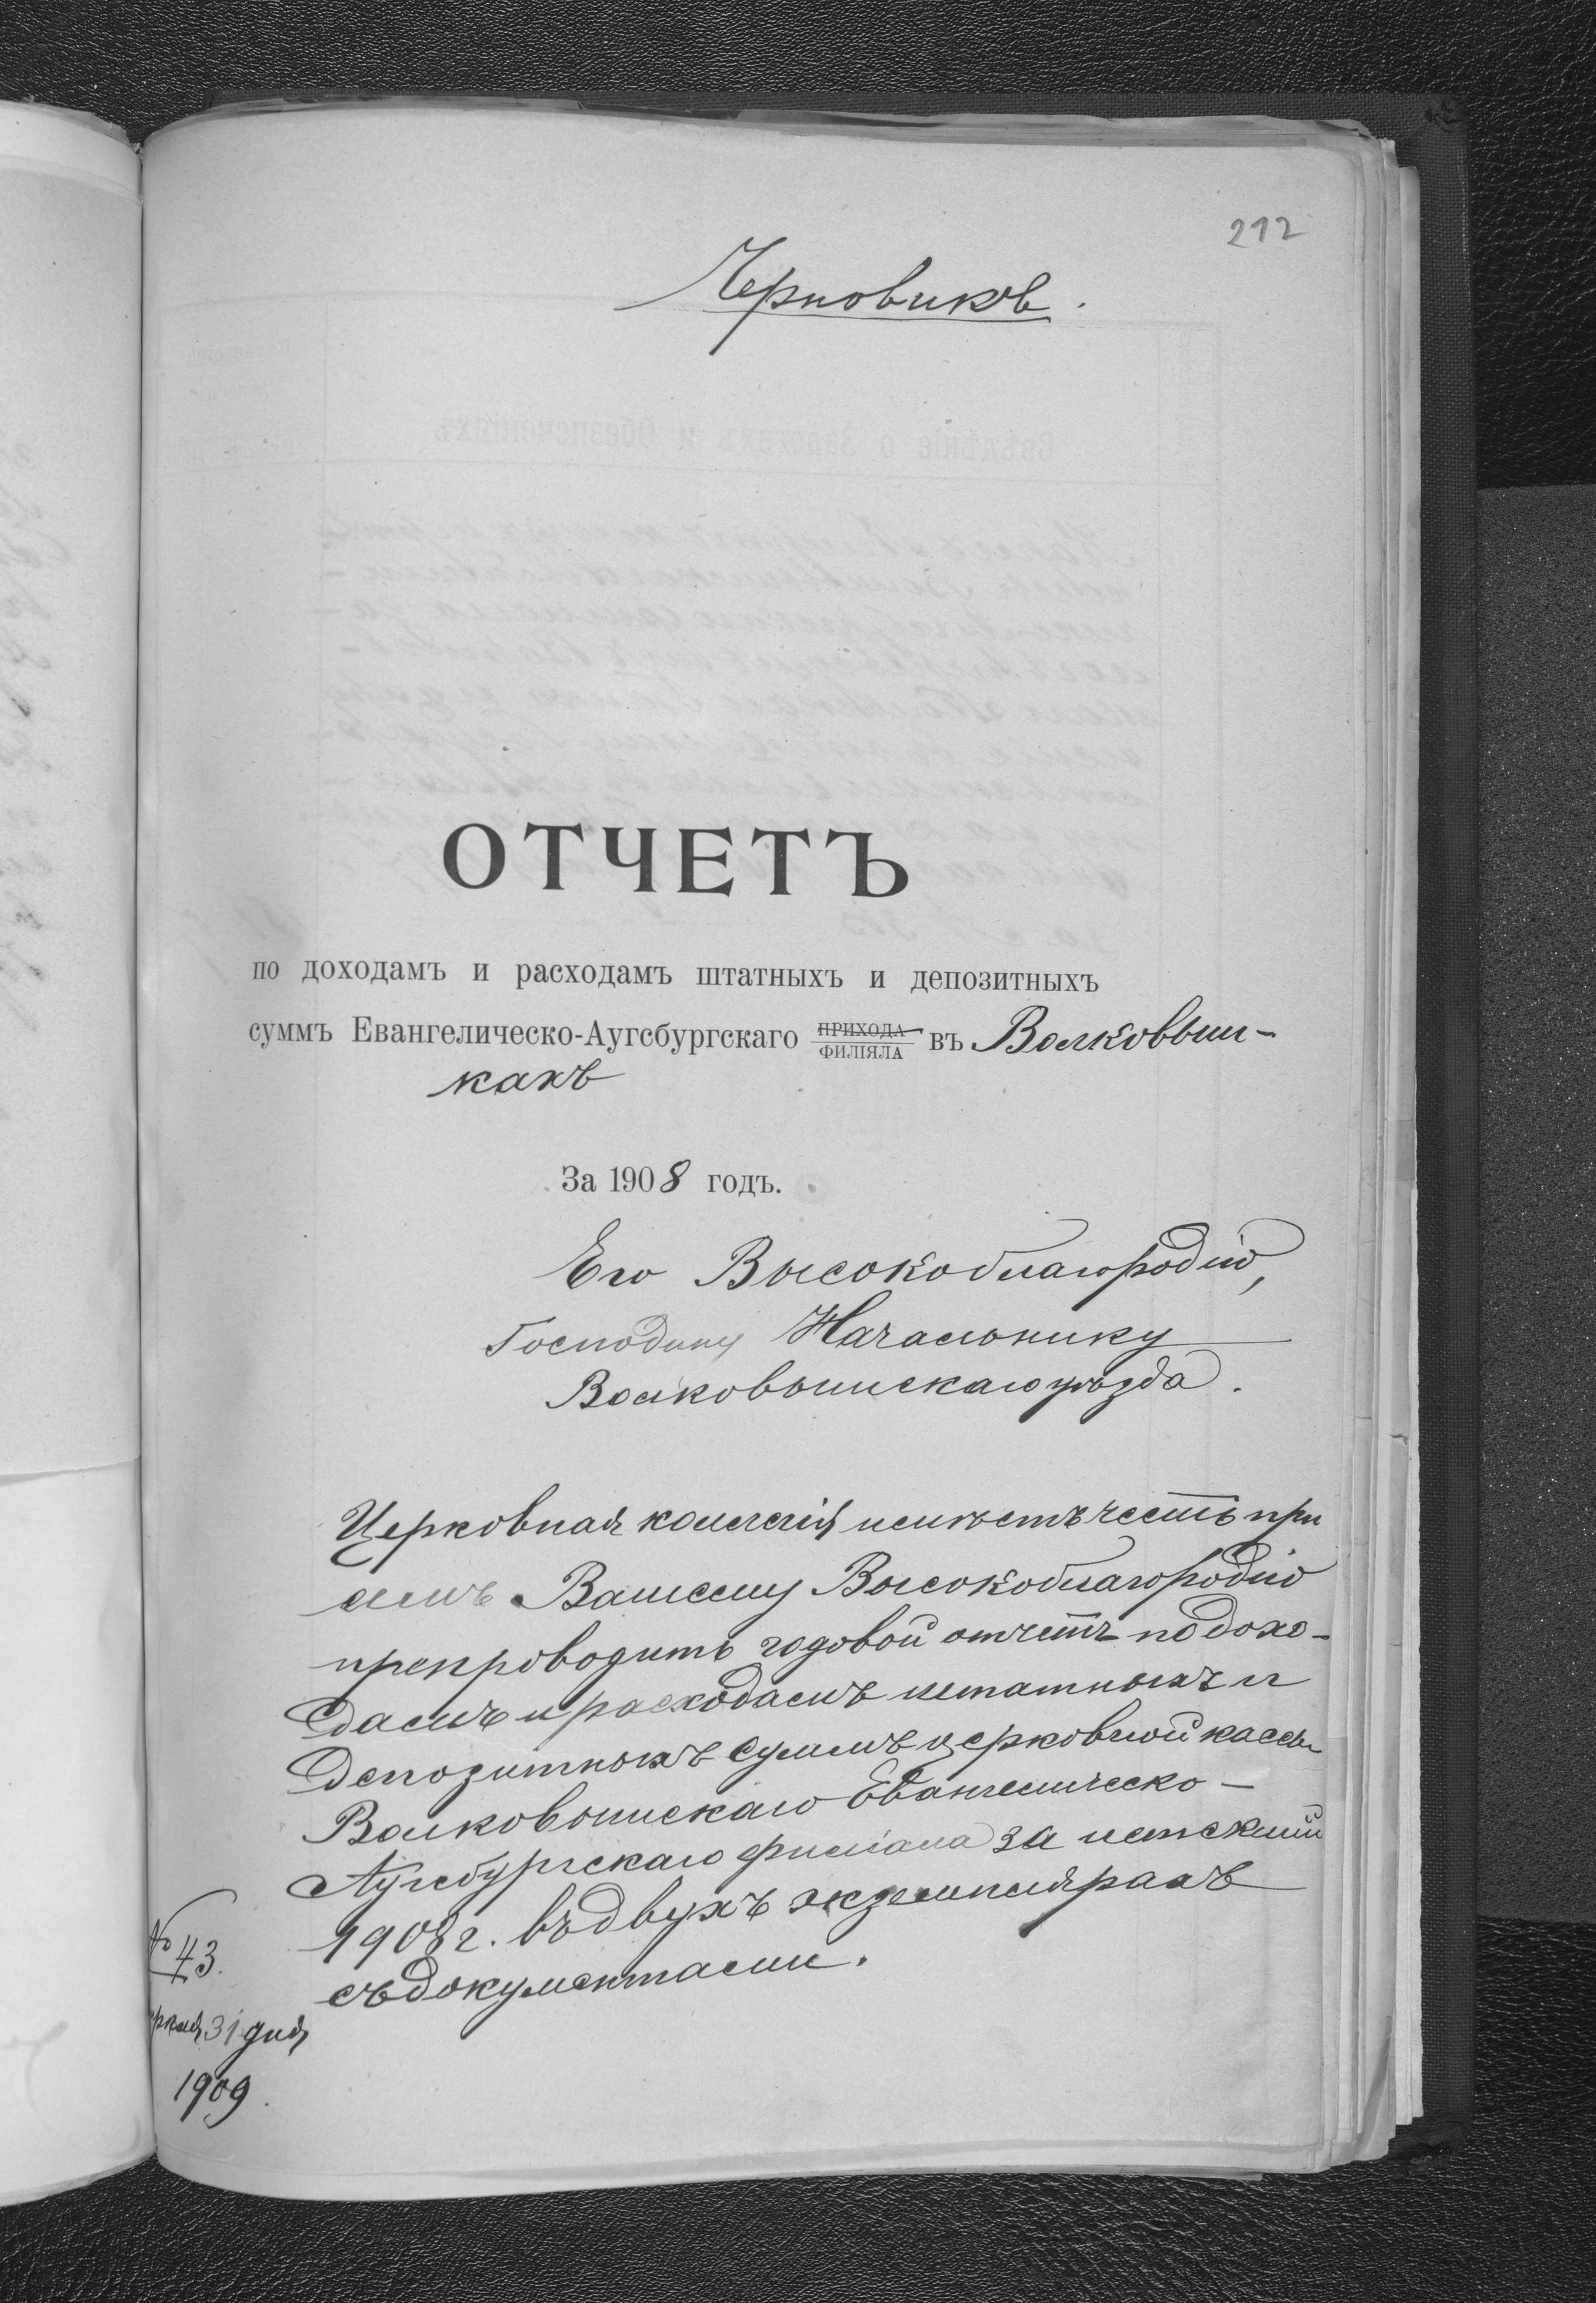 212
Черновикъ.
ОТЧЕТЪ
по доходамъ и расходамъ штатныхъ и депозитныхъ
суммъ Евангелическо-Аугсбургскаго ПРИХОДА ФИЛІЯЛА въ Волковыш-
кахъ
За 1908 годъ.
Его Высокоблагородію,
Господину Начальнику
Волковышскаго уѣзда.
Церковная коллегія имѣетъ честь при
семъ Вашему Высокоблагородію
препроводить годовой отчетъ по дохо-
дамъ и расходамъ штатныхъ и
депозитныхъ суммъ церковной кассы
Волковышскаго Евангелическо-
Аугсбургскаго филіала за истекшій
1908 г. въ двухъ экземплярахъ
съ документами.
№ 43.
31 дня
1909.